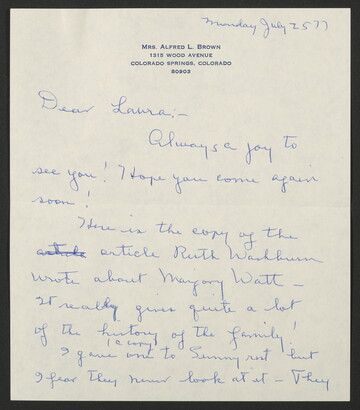 Monday July 25 77
MRS. ALFRED L. BROWN
1315 WOOD AVENUE
COLORADO SPRINGS, COLORADO
80903
Dear Laura;-
Always a joy to
see you! I hope you come again
soon!
Here is the copy of the
article Ruth Washburn
wrote about Marjory Watt -
It really gives quite a lot
of the history of the family!
(a copy)
I gave one to Sunny rest but
I fear they never look at it - They